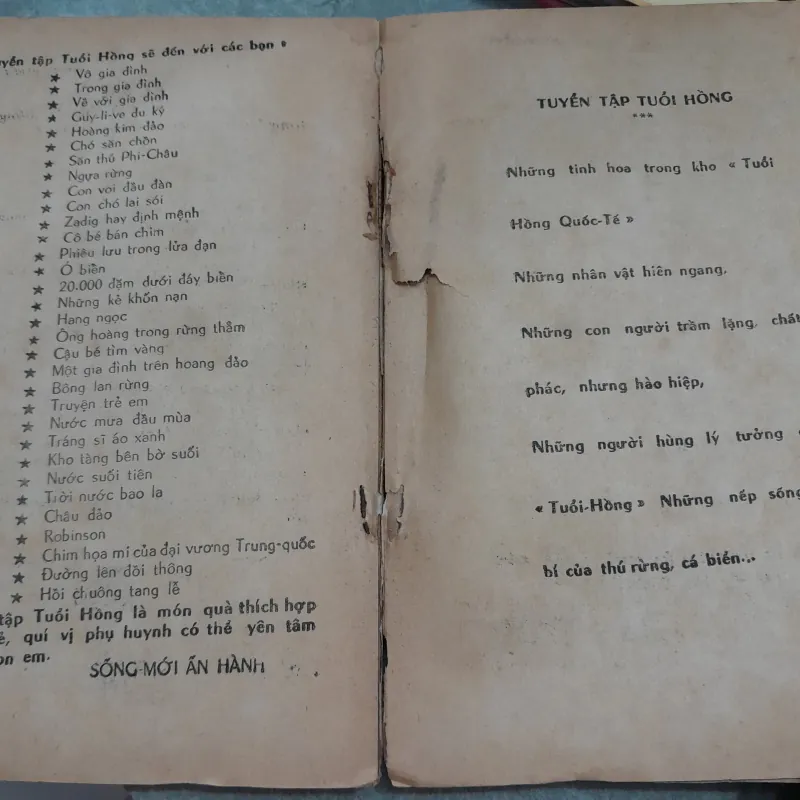 tập Tuổi Hồng sẽ đến với các bạn
★ Vô gia đình
★ Trong gia đình
★ Về với gia đình
★ Guy-li-ve du ký
★ Hoàng kim đảo
★ Chó săn chồn
★ Săn thú Phi-Châu
★ Ngựa rừng
★ Con voi đầu đàn
★ Con chó lai sói
★ Zadig hay định mệnh
★ Cô bé bán chim
★ Phiêu lưu trong lửa đạn
★ Ó biển
★ 20.000 dặm dưới đáy biển
★ Những kẻ khốn nạn
★ Hang ngọc
★ Ông hoàng trong rừng thẳm
★ Cậu bé tìm vàng
★ Một gia đình trên hoang đảo
★ Bông lan rừng
★ Truyện trẻ em
★ Nước mưa đầu mùa
★ Tráng sĩ áo xanh
★ Kho tàng bên bờ suối
★ Nước suối tiên
★ Trời nước bao la
★ Châu đảo
★ Robinson
★ Chim họa mi của đại vương Trung-quốc
★ Đường lên đồi thông
★ Hồi chuông tang lễ
tập Tuổi Hồng là món quà thích hợp
quí vị phụ huynh có thể yên tâm
em.
SỐNG-MỚI ẤN HÀNH
TUYỂN TẬP TUỔI HỒNG
***
Những tinh hoa trong kho « Tuổi
Hồng Quốc-Tế »
Những nhân vật hiên ngang,
Những con người trầm lặng, chất
phác, nhưng hào hiệp,
Những người hùng lý tưởng
« Tuổi-Hồng » Những nếp sống
bí của thú rừng, cá biển...